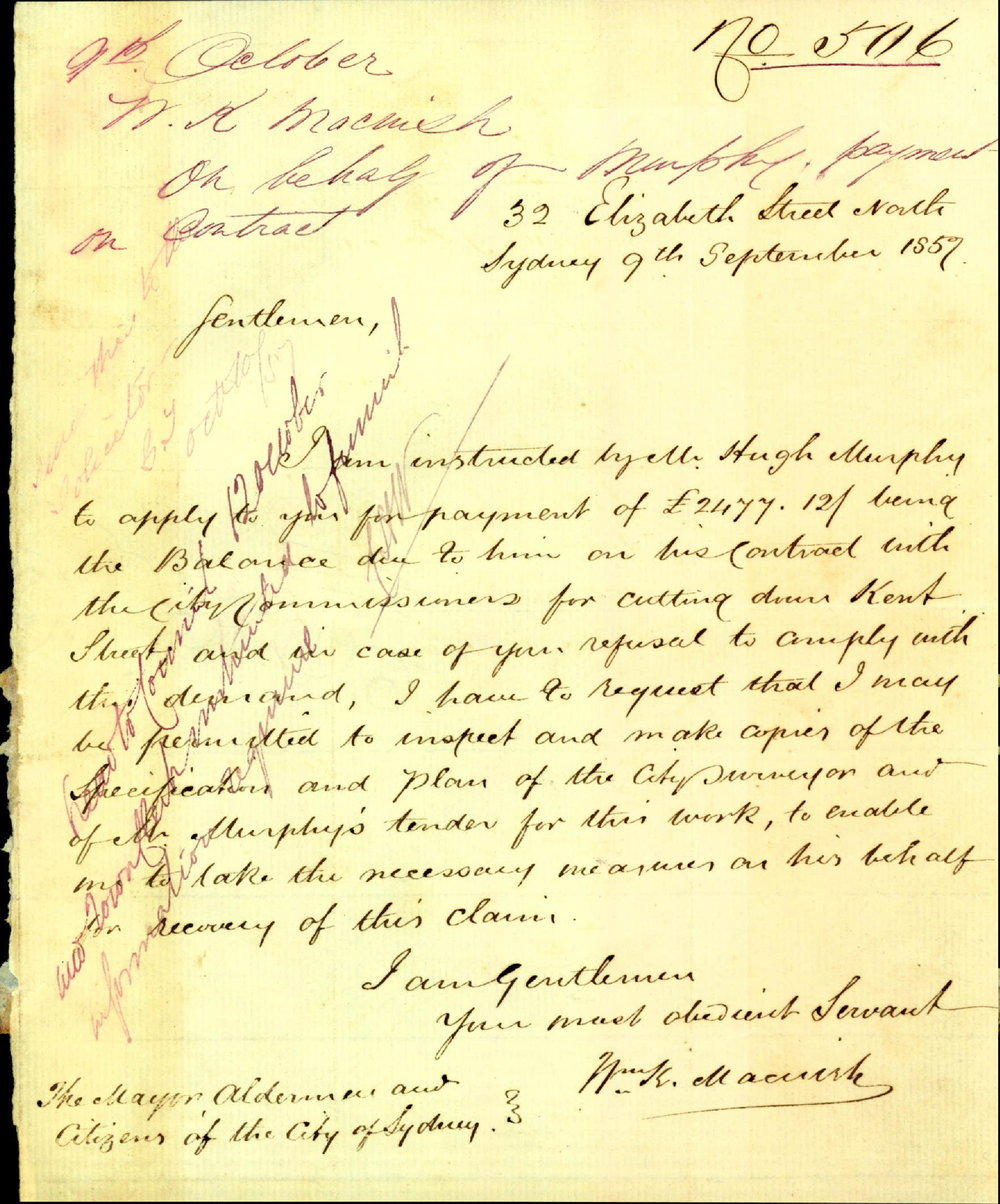 No 506
9th October
W. K Macnish
On behalf of Murphy. payment
on Contract
32 Elizabeth Street North
Sydney 9th September 1857.
Gentlemen,
I am instructed by Mr. Hugh Murphy
to apply to you for payment of £2477. 12/ being
the Balance due to him on his Contract with
the City Commissioners for cutting down Kent
Street, and in case of your refusal to comply with
this demand, I have to request that I may
be permitted to inspect and make copies of the
Specification and Plan of the City Surveyor and
of Mr. Murphy's tender for this work, to enable
me to take the necessary measures on his behalf
for recovery of this Claim.
I am Gentlemen
Your most obedient Servant
Wm K. Macnish
The Mayor Aldermen and
Citizens of the City of Sydney.
Read to Council 12 October
and Town Clerk instructed to furnish
information required